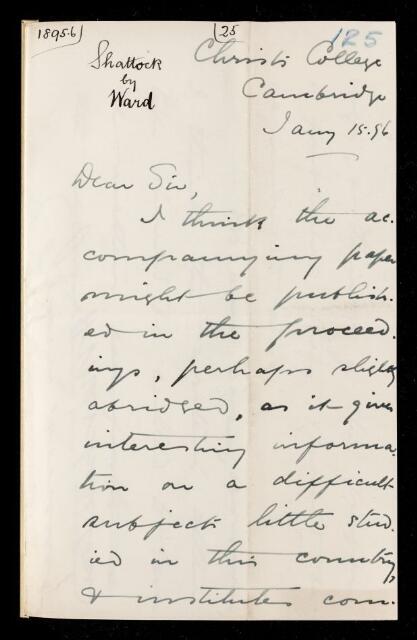 1895-6)
(25
125
Shattock
by
Ward
Christ's College
Cambridge
Jany 15. 96
Dear Sir,
I think the ac-
companying paper
might be publish-
ed in the proceed-
ings, perhaps slightly
abridged, as it gives
interesting informa-
tion on a difficult
subject little stud-
ied in this country,
& institutes com-